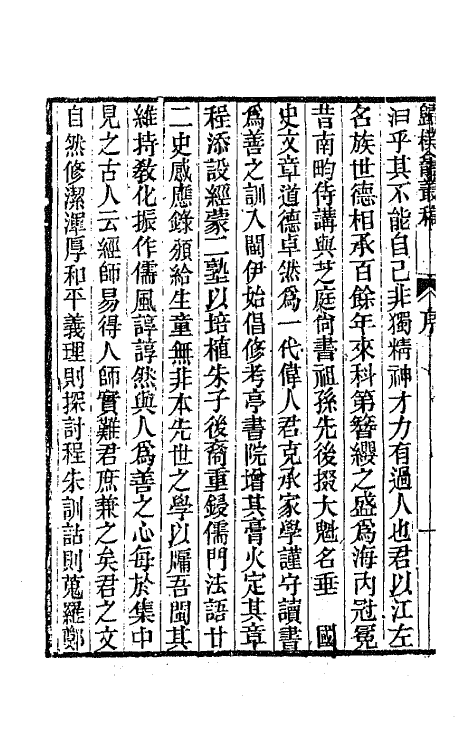 歸樸龕叢稿 序 一
汩乎其不能自己非獨精神才力有過人也君以江左
名族世德相承百餘年來科第簪纓之盛爲海內冠冕
昔南畇侍講與芝庭尙書祖孫先後掇大魁名垂 國
史文章道德卓然爲一代偉人君克承家學謹守讀書
爲善之訓入閩伊始倡修考亭書院增其膏火定其章
程添設經蒙二塾以培植朱子後裔重鋟儒門法語廿
二史感應錄頒給生童無非本先世之學以牖吾閩其
維持敎化振作儒風諄諄然與人爲善之心每於集中
見之古人云經師易得人師實難君庶兼之矣君之文
自然修潔渾厚和平義理則探討程朱訓詁則蒐羅鄭